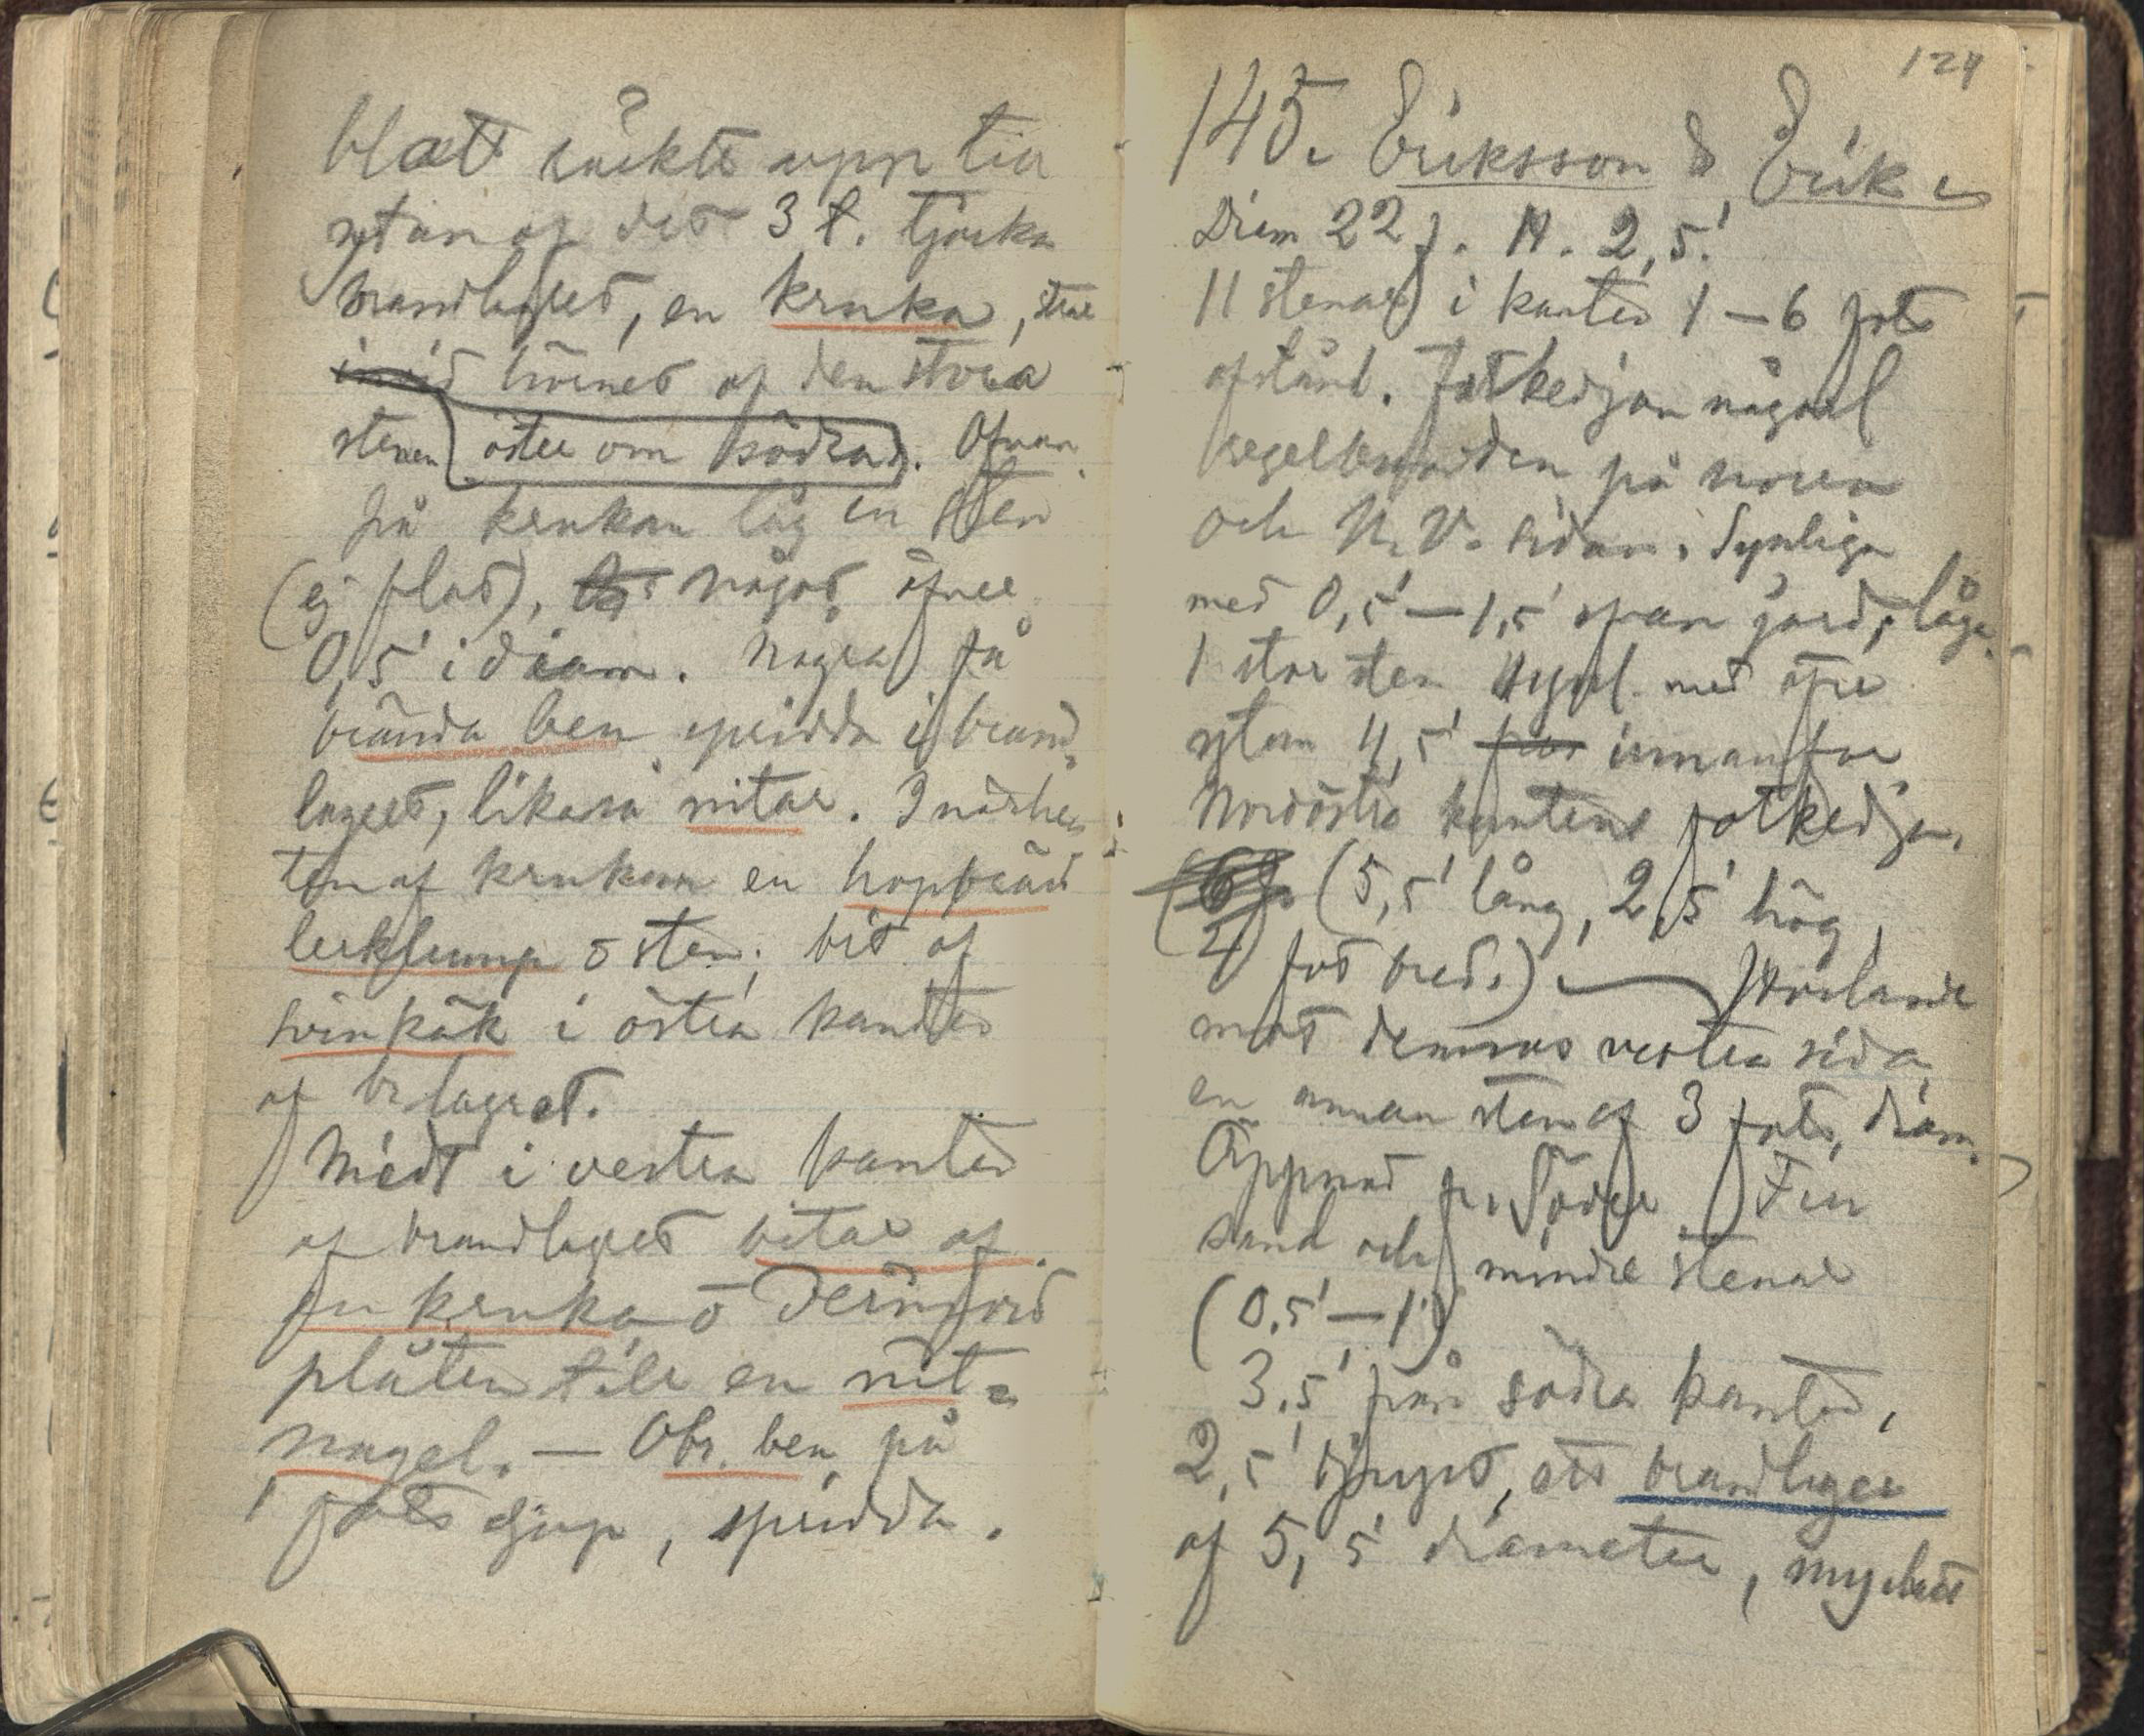 blott räckte upp till
ytan af det 3 t. tjocka
brandlagret, en kruka, strax
invid hörnet af den stora
stenen öster om södra. Ofvan
på krukan låg en sten
(ej flat), något öfver
0,5' i diam. Några få
brända ben spridda i brand-
lagret, likaså nitar. I närhe-
ten af krukan en hopbränd
lerklump o sten; bit af
svinkäk i östra kanten
af br lagret.
Midt i vestra kanten
af brandlagret bitar af
en kruka o derinvid
plåten till en nit-
nagel. — Obr. ben på
1 fots djup, spridda.
124
145. Eriksson & Erik
Diam 22 f. H. 2,5'
11 stenar i kanten 1 – 6 fots
afstånd. Fotkedjan någorl
regelbunden på norra
och N.V. sidan. Synliga
med 0,5' – 1,5' ofvan jord, låga
1 stor sten synl. med öfre
ytan 4,5' från innanför
Nordöstra kantens fotkedja.
(5,5' lång, 2,5' hög,
4 fot bred.) Hvilande
mot dennas vestra sida
en annan sten af 3 fots diam.
Öppnad fr. Söder. Fin
sand och mindre stenar
(0,5' – 1')
3,5' från södra kanten,
2,5' djupt, ett brandlager
af 5,5' diameter, mycket